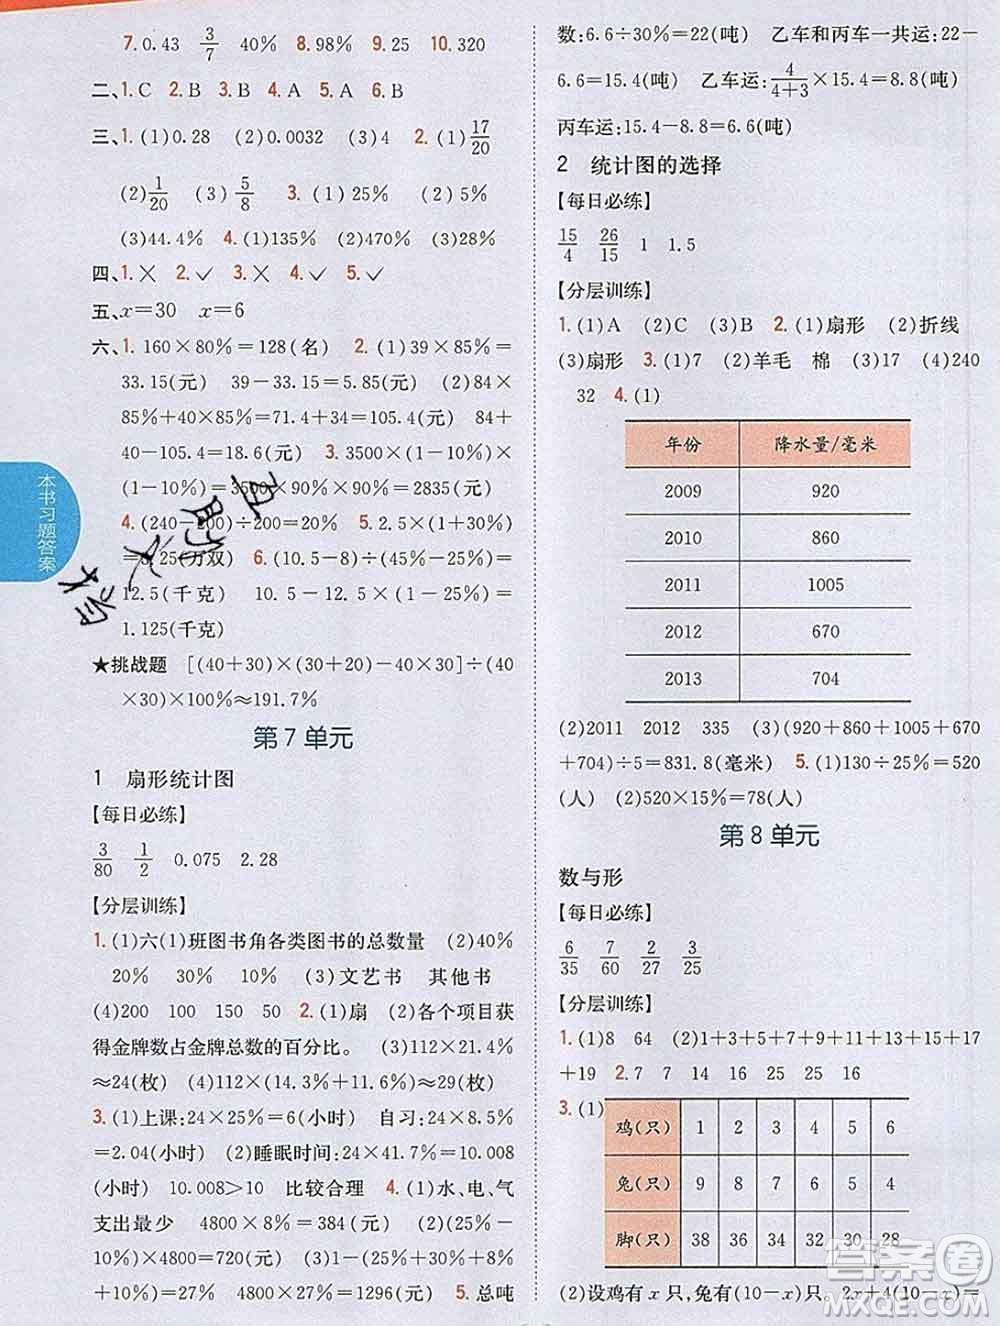 7. 0.43 3/7 40% 8. 98% 9. 25 10. 320
二、1. C 2. B 3. C 4. A 5. A 6. B
三、1. (1)0.28 (2)0.0032 (3)4 2. (1)17/20
(2)1/20 (3)5/8 3. (1)25% (2)5%
(3)44.4% 4. (1)135% (2)470% (3)28%
四、1. × 2. ✓ 3. × 4. ✓ 5. ✓
五、x=30 x=6
六、1. 160×80%=128(名) 2. (1)39×85%=
33.15(元) 39-33.15=5.85(元) (2)84×
85%+40×85%=71.4+34=105.4(元) 84+
40-105.4=18.6(元) 3. 3500×(1-10%)×
(1-10%)=3500×90%×90%=2835(元)
4. (240-200)÷200=20% 5. 2.5×(1+30%)
=3.25(万双) 6. (10.5-8)÷(1-80%)=
12.5(千克) 10.5-12.5×(1-25%)=
1.125(千克)
★挑战题 [(40+30)×(30+20)-40×30]÷(40
×30)×100%≈191.7%
第7单元
1 扇形统计图
【每日必练】
3/80 1/2 0.075 2.28
【分层训练】
1. (1)六(1)班图书角各类图书的总数量 (2)40%
20% 30% 10% (3)文艺书 其他书
(4)200 100 150 50 2. (1)扇 (2)各个项目获
得金牌数占金牌总数的百分比。 (3)112×21.4%
≈24(枚) (4)112×(1.6%+11.6%+22.3%)
3. (1)上课:24×25%=6(小时) 自习:24×8.5%=
2.04(小时) (2)睡眠时间:24×41.7%=10.008
(小时) 10.008>10 比较合理 4. (1)水、电、气
支出最少 4800×8%=384(元) (2)(25%-
10%)×4800=720(元) (3)(1-25%-30%-8%
-10%)×4800=1296(元) 5. 总吨
数:6.6÷30%=22(吨) 乙车和丙车一共运:22-
6.6=15.4(吨) 乙车运:4/(4+3)×15.4=8.8(吨)
丙车运:15.4-8.8=6.6(吨)
2 统计图的选择
【每日必练】
15/4 26/15 1 1.5
【分层训练】
1. (1)A (2)C (3)B 2. (1)扇形 (2)折线
(3)扇形 3. (1)7 (2)羊毛 棉 (3)17 (4)240
32 4. (1)
年份 降水量/毫米
2009 920
2010 860
2011 1005
2012 670
2013 704
(2)2011 2012 335 (3)(920+860+1005+670
+704)÷5=831.8(毫米) 5. (1)78÷15%=520
(人) (2)520×15%=78(人)
第8单元
数与形
【每日必练】
6/35 7/60 2/27 3/25
【分层训练】
1. (1)8 64 (2)1+3+5+7+9+11+13+15+17
+19 2. 7 7 14 16 25 16
3. (1)
鸡(只) 1 2 3 4 5 6
兔(只) 9 8 7 6 5 4
脚(只) 38 36 34 32 30 28
(2)设鸡有x只,兔有(10-x)只。 2x+4(10-x)=
本书习题答案
答案圈
MXQE.COM